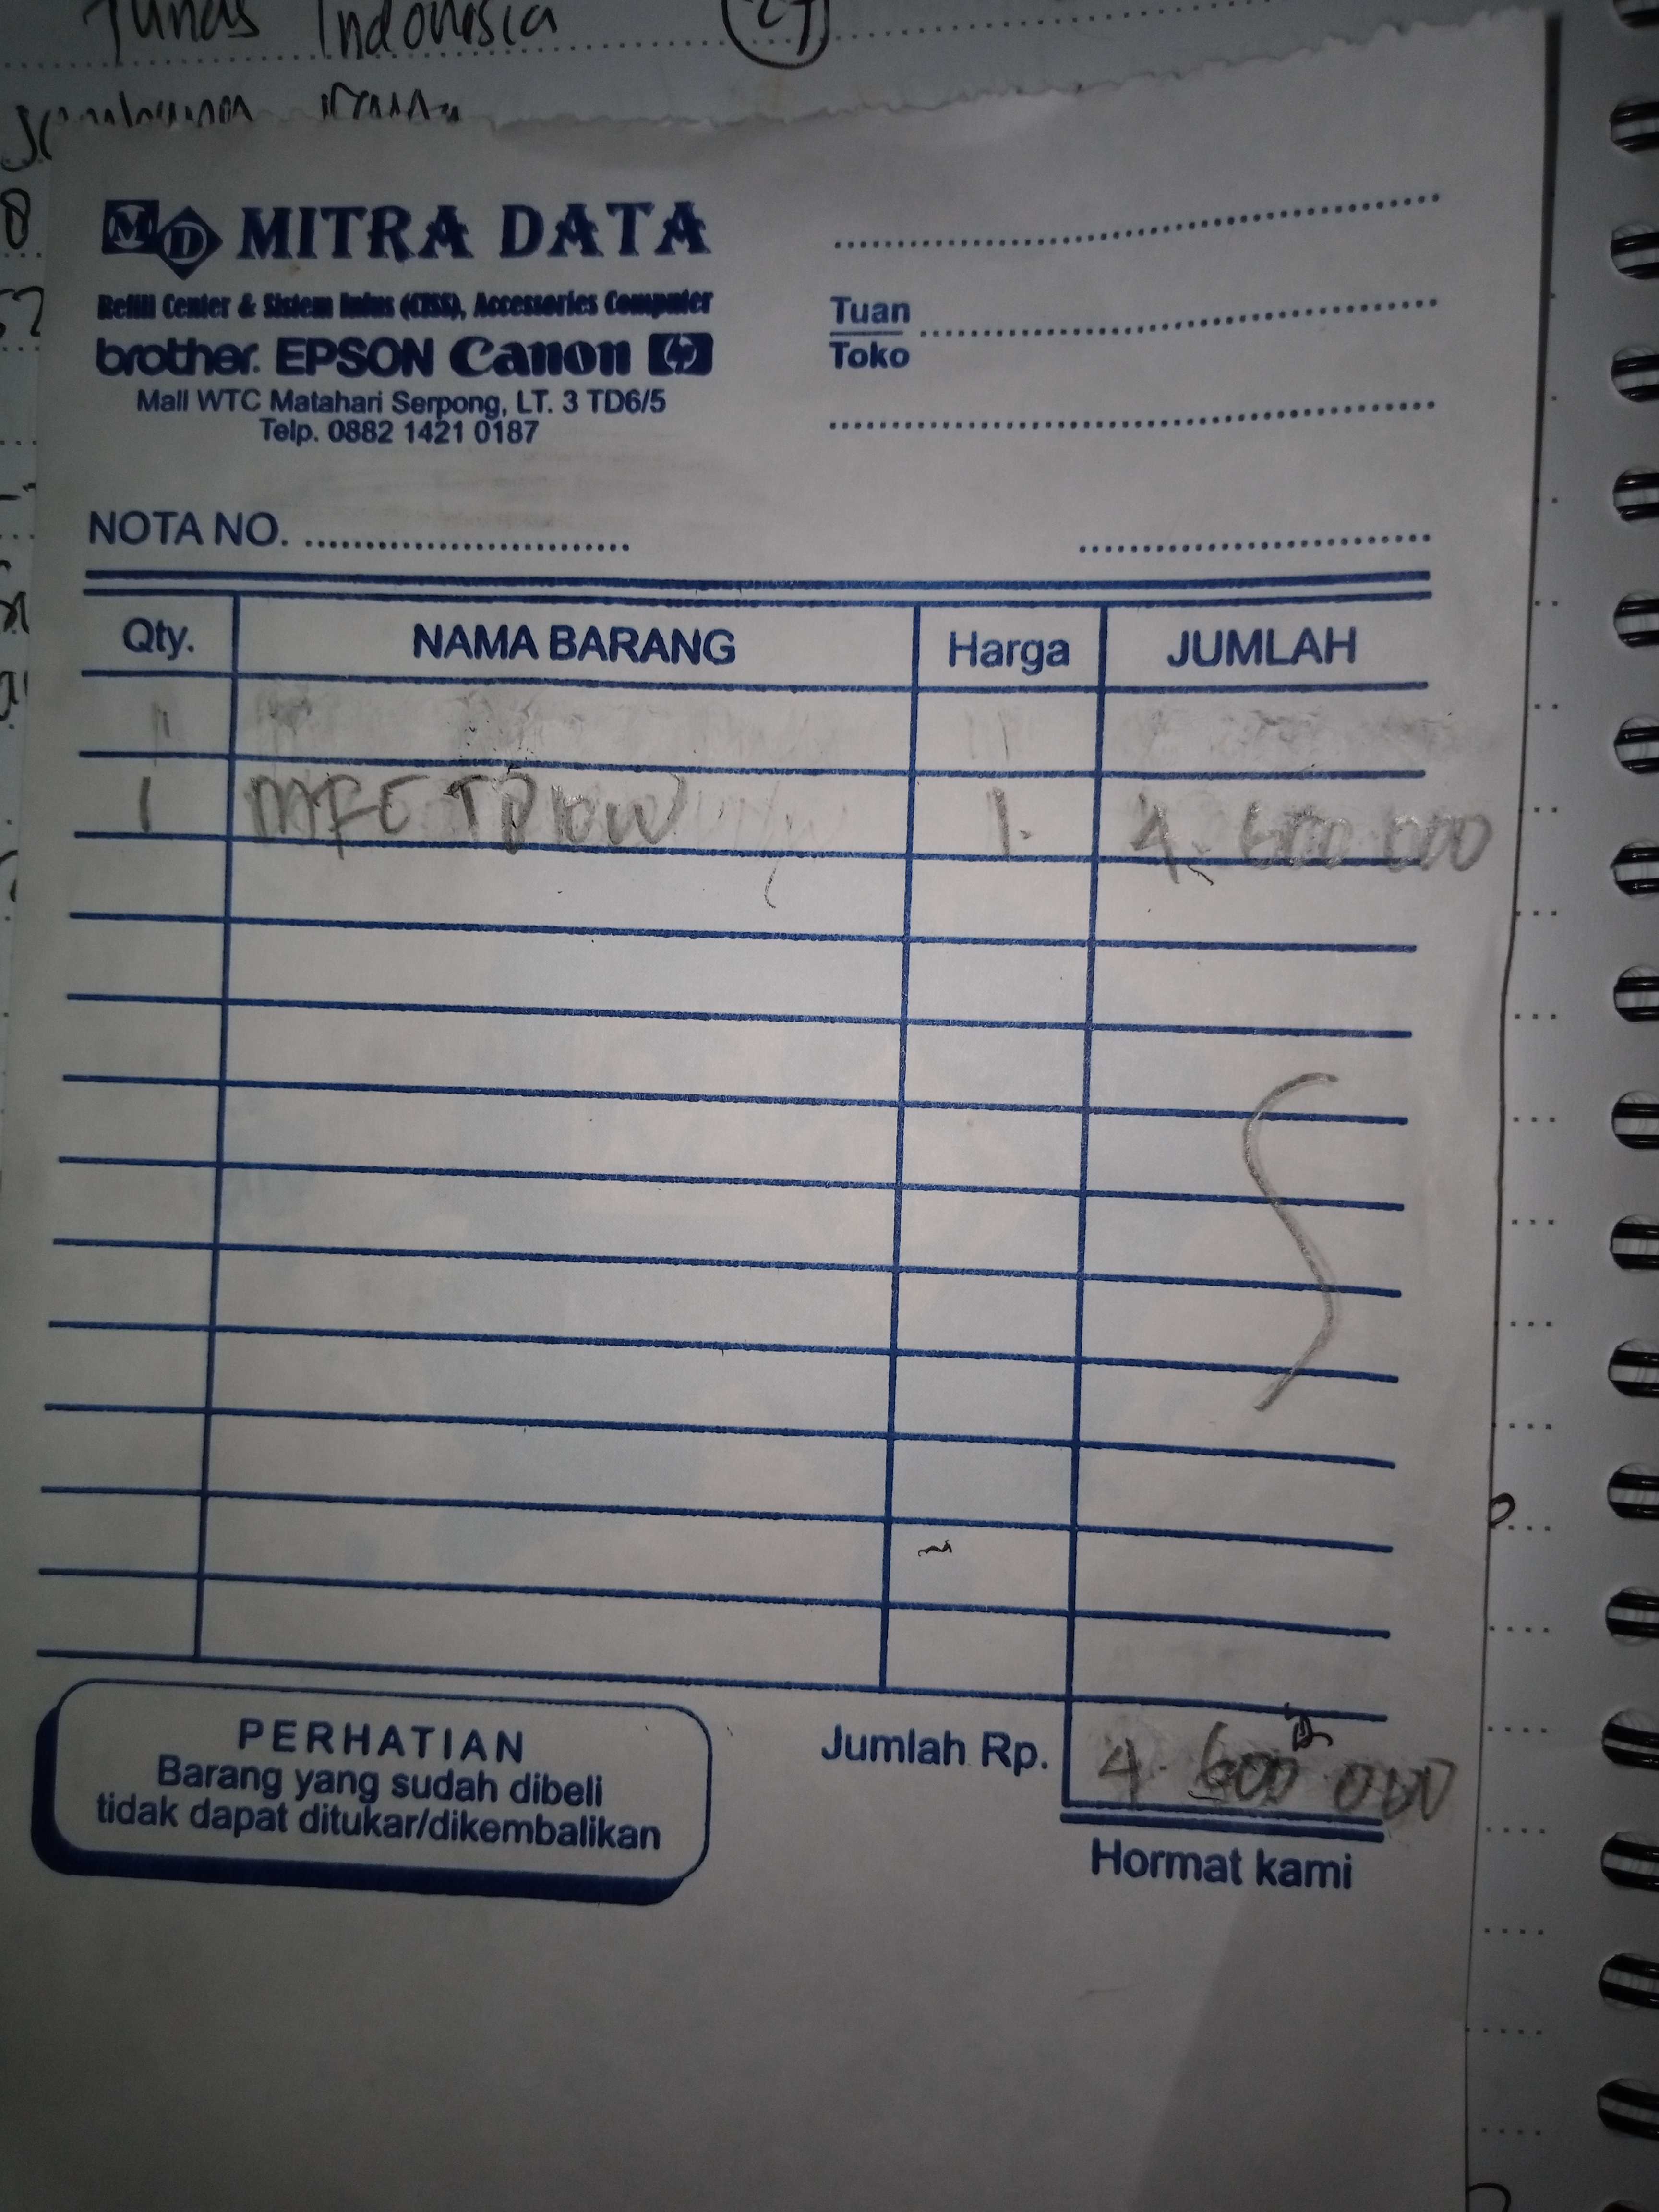 Tunas Indonesia
MD MITRA DATA
Refill Center & Sistem Infus (CISS), Accessories Computer
brother. EPSON Canon hp
Mall WTC Matahari Serpong, LT. 3 TD6/5
Telp. 0882 1421 0187
Tuan
Toko
NOTA NO.
Qty. NAMA BARANG Harga JUMLAH
1 MFC 1. 4.600.000
Jumlah Rp. 4.600.000
PERHATIAN
Barang yang sudah dibeli
tidak dapat ditukar/dikembalikan
Hormat kami